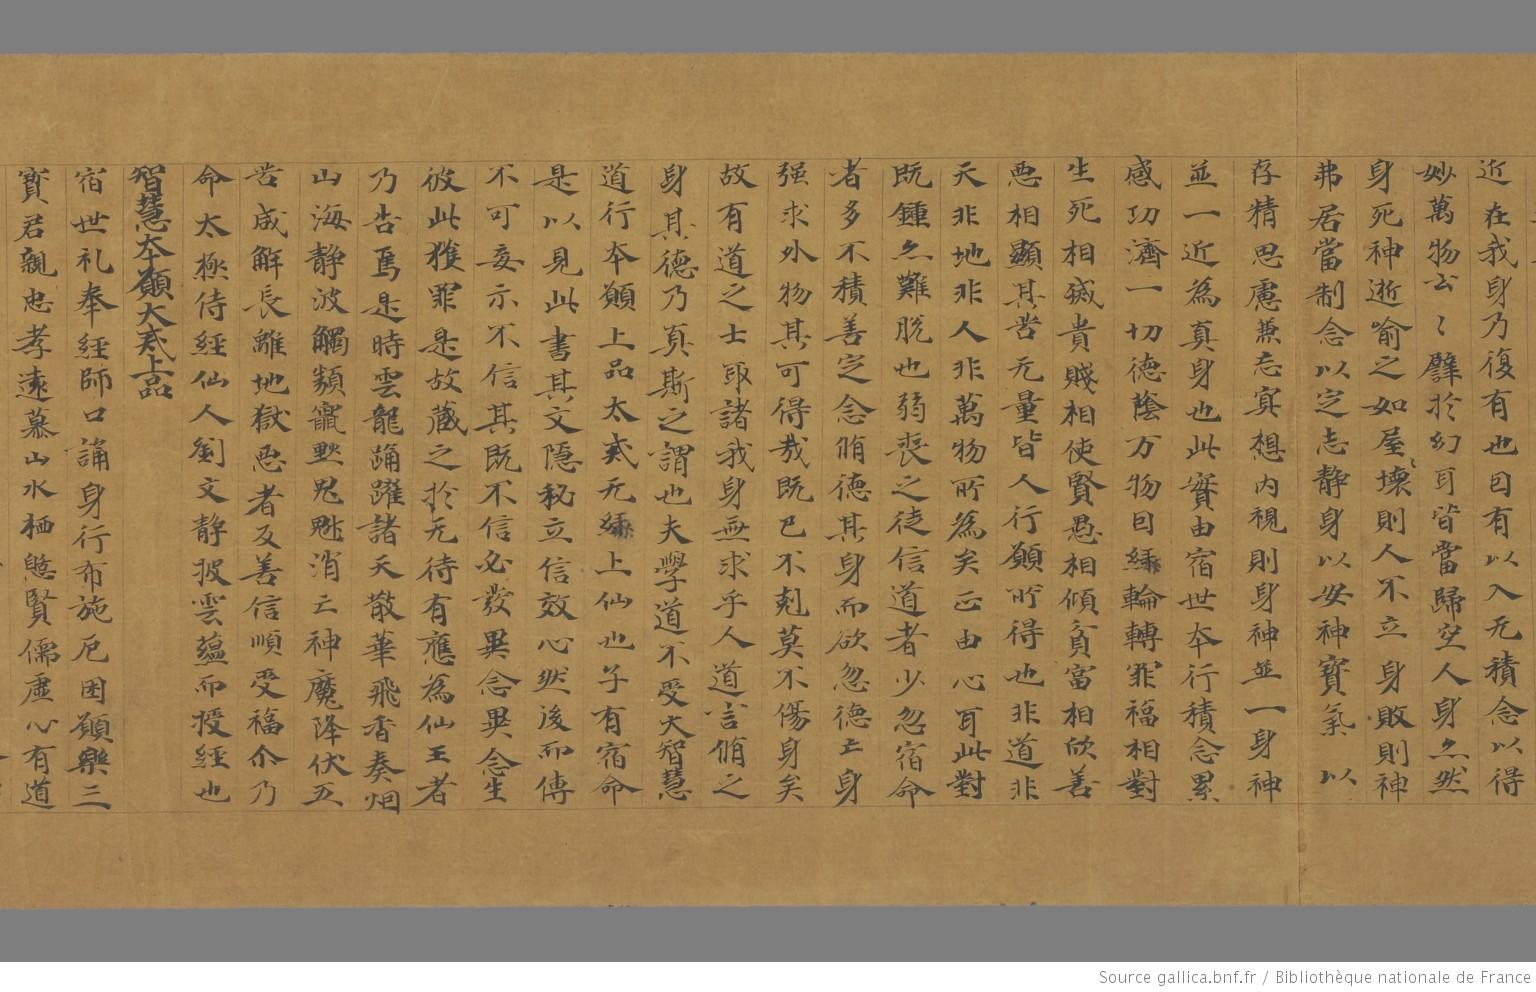 近在我身乃復有也因有以入无積念以得
妙萬物云〻譬於幻耳皆當歸空人身亦然
身死神逝喻之如屋壞則人不立身敗則神
弗居當制念以定志静身以安神寳氣以
存精思慮兼忘冥想内視則身神並一身神
並一近為真身也此實由宿世本行積念累
感功濟一切德蔭万物因緣輪轉罪福相對
生死相滅貴賤相使賢愚相傾貧富相欣善
惡相顯其苦无量皆人行願所得也非道非
天非地非人非萬物所為矣正由心耳此對
既鍾亦難脱也弱喪之徒信道者少忽宿命
者多不積善定念脩德其身而欲忽德亡身
强求外物其可得哉既已不剋莫不傷身矣
故有道之士取諸我身無求乎人道言脩之
身其德乃真斯之謂也夫學道不受大智慧
道行本願上品大戒无緣上仙也子有宿命
是以見此書其文隱秘立信效心然後而傳
不可妄示不信其既不信必發異念異念生
彼此獲罪是故蔵之於无待有應為仙王者
乃告焉是時雲龍踊躍諸天散華飛香奏烟
山海静波觸類竄黙鬼魃消亡神魔降伏五
苦咸解長離地獄惡者反善信順受福尒乃
命太極侍經仙人劉文静披雲蕴而授經也
智慧本願大戒上品
宿世礼奉經師口誦身行布施厄困願樂三
寳君親忠孝遠慕山水栖憩賢儒虚心有道
Source gallica.bnf.fr / Bibliothèque nationale de France